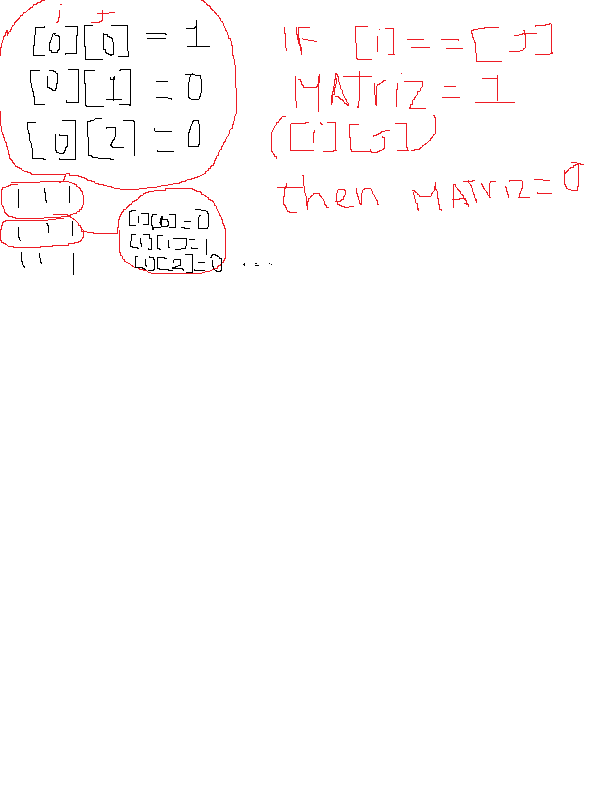 i J
[0][0] = 1
[0][1] = 0
[0][2] = 0
1 1 1
1 1 1
1 1 1
[1][0]=0
[1][1]=1
[1][2]=0 ....
IF [i]==[J]
MATriZ = 1
([i][J])
then MATriZ=0